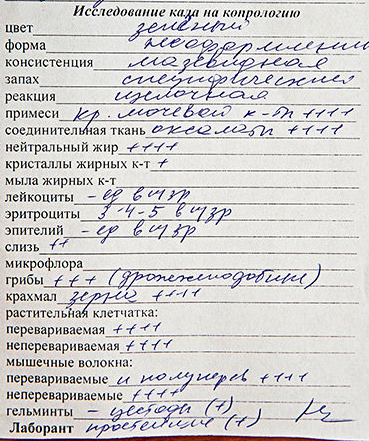 Исследование кала на копрологию
цвет зелёный
форма неоформленный
консистенция мазевидная
запах специфический
реакция щелочная
примеси кр. мочевой к-ты ++++
соединительная ткань оксалаты ++++
нейтральный жир ++++
кристаллы жирных к-т +
мыла жирных к-т
лейкоциты - ед в п/зр
эритроциты 3-4-5 в п/зр
эпителий - ед в п/зр
слизь ++
микрофлора
грибы +++ (дрожжеподобные)
крахмал зерна ++++
растительная клетчатка:
перевариваемая ++++
непереваримая ++++
мышечные волокна:
перевариваемые и полуперев ++++
непереваримые ++++
гельминты - цестоды (+)
Лаборант простейшие (+)